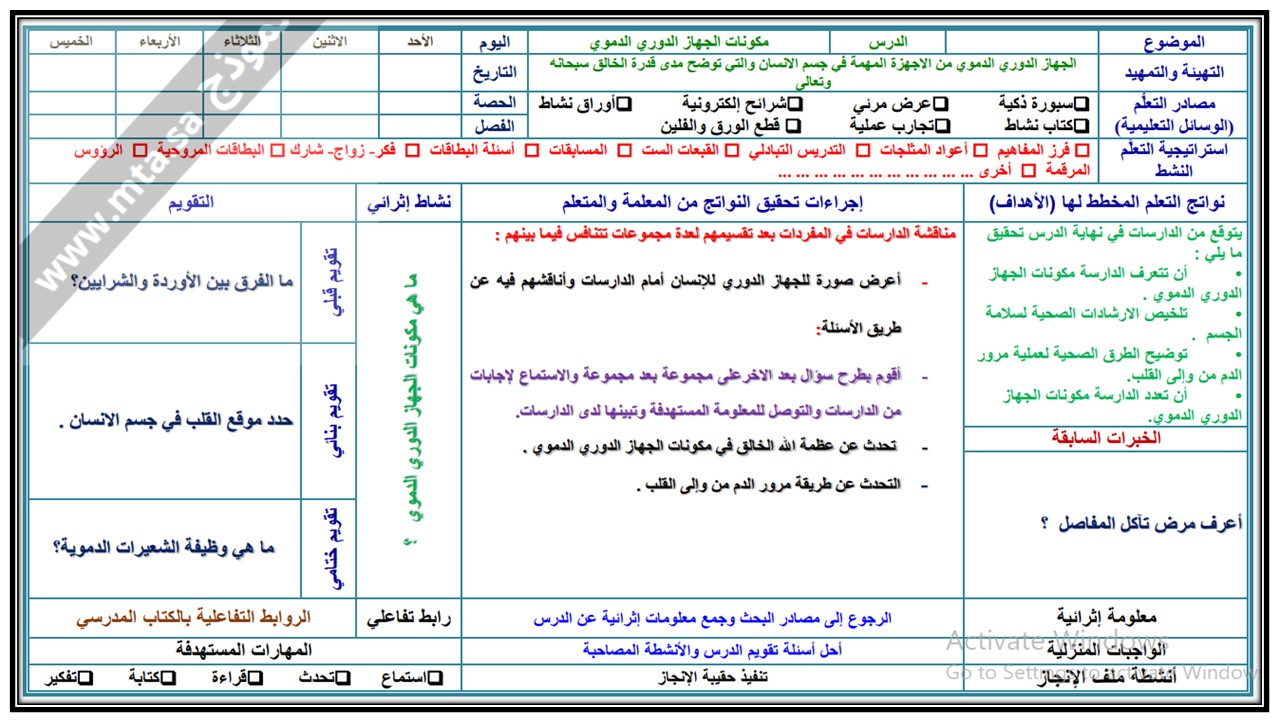 الموضوع
مكونات الجهاز الدوري الدموي
الدرس
اليوم
الأحد
الاثنين
الثلاثاء
الأربعاء
الخميس
التهيئة والتمهيد
الجهاز الدوري الدموي من الاجهزة المهمة في جسم الانسان والتي توضح مدى قدرة الخالق سبحانه
وتعالي
التاريخ
مصادر التعلّم
(الوسائل التعليمية)
❑سبورة ذكية ❑عرض مرئي ❑شرائح إلكترونية ❑أوراق نشاط
❑كتاب نشاط ❑تجارب عملية ❑ قطع الورق والفلين
الحصة
الفصل
استراتيجية التعلّم
النشط
□ فرز المفاهيم □ أعواد المثلجات □ التدريس التبادلي □ القبعات الست □ المسابقات □ أسئلة البطاقات □ فكر- زواج- شارك □ البطاقات المروحية □ الرؤوس
المرقمة □ أخرى ... ... ... ... ... ... ... ... ... ... ...
نواتج التعلم المخطط لها (الأهداف)
إجراءات تحقيق النواتج من المعلمة والمتعلم
نشاط إثرائي
التقويم
يتوقع من الدارسات في نهاية الدرس تحقيق
ما يلي :
• أن تتعرف الدارسة مكونات الجهاز
الدوري الدموي .
• تلخيص الارشادات الصحية لسلامة
الجسم .
• توضيح الطرق الصحية لعملية مرور
الدم من وإلى القلب.
• أن تعدد الدارسة مكونات الجهاز
الدوري الدموي.
الخبرات السابقة
أعرف مرض تآكل المفاصل ؟
مناقشة الدارسات في المفردات بعد تقسيمهم لعدة مجموعات تتنافس فيما بينهم :
- أعرض صورة للجهاز الدوري للإنسان أمام الدارسات وأناقشهم فيه عن
طريق الأسئلة:
- أقوم بطرح سؤال بعد الاخرعلى مجموعة بعد مجموعة والاستماع لإجابات
من الدارسات والتوصل للمعلومة المستهدفة وتبينها لدى الدارسات.
- تحدث عن عظمة الله الخالق في مكونات الجهاز الدوري الدموي .
- التحدث عن طريقة مرور الدم من وإلى القلب .
ما هي مكونات الجهاز الدوري الدموي ؟
تقويم قبلي
ما الفرق بين الأوردة والشرايين؟
تقويم بنائي
حدد موقع القلب في جسم الانسان .
تقويم ختامي
ما هي وظيفة الشعيرات الدموية؟
معلومة إثرائية
الرجوع إلى مصادر البحث وجمع معلومات إثرائية عن الدرس
رابط تفاعلي
الروابط التفاعلية بالكتاب المدرسي
الواجبات المنزلية
أحل أسئلة تقويم الدرس والأنشطة المصاحبة
المهارات المستهدفة
أنشطة ملف الإنجاز
تنفيذ حقيبة الإنجاز
❑استماع ❑تحدث ❑قراءة ❑كتابة ❑تفكير
Activate Windows
Go to Settings to activate Window
نموذج www.mta.sa